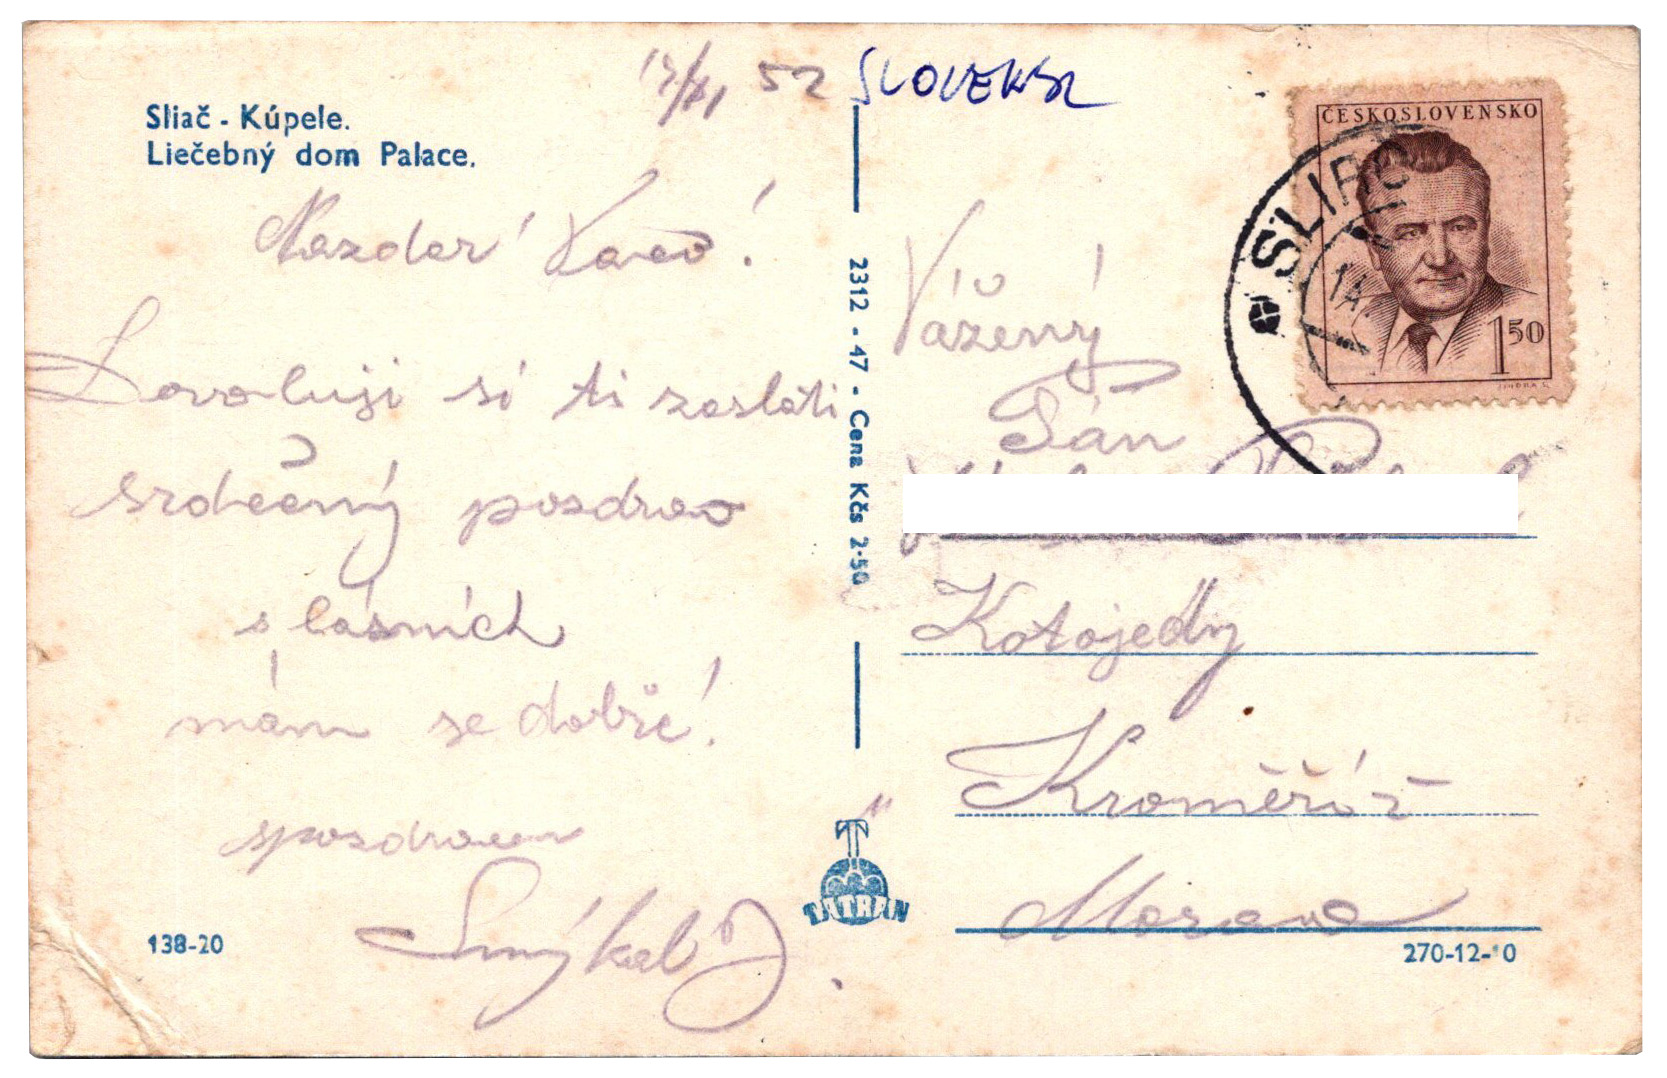 Sliač - Kúpele.
Liečebný dom Palace.
52
Nazdar
Dovoluji si ti zaslati
srdečný pozdrav
s lásních
mám se dobře!
spozdravem
Smýkal J.
2312 - 47 - Cena Kčs 2·50
TATRAN
138-20
ČESKOSLOVENSKO
1 50
SLIAČ
Vážený
Pán
Kotojedy
Kroměříž
Morava
270-12-10